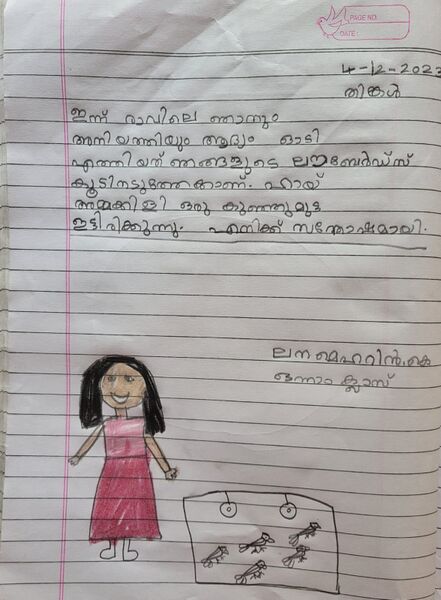 PAGE NO:
DATE:
4-12-2023
തിങ്കൾ
ഇന്ന് രാവിലെ ഞാനും
അനിയത്തിയും ആദ്യം ഓടി
എത്തിയത് ഞങ്ങളുടെ ലൗബേർഡ്സ്
കൂടിനടുത്തേക്കാണ്. ഹായ്
അമ്മക്കിളി ഒരു കുഞ്ഞുമുട്ട
ഇട്ടിരിക്കുന്നു. എനിക്ക് സന്തോഷമായി.
ലന മെഹറിൻ.കെ
ഒന്നാം ക്ലാസ്